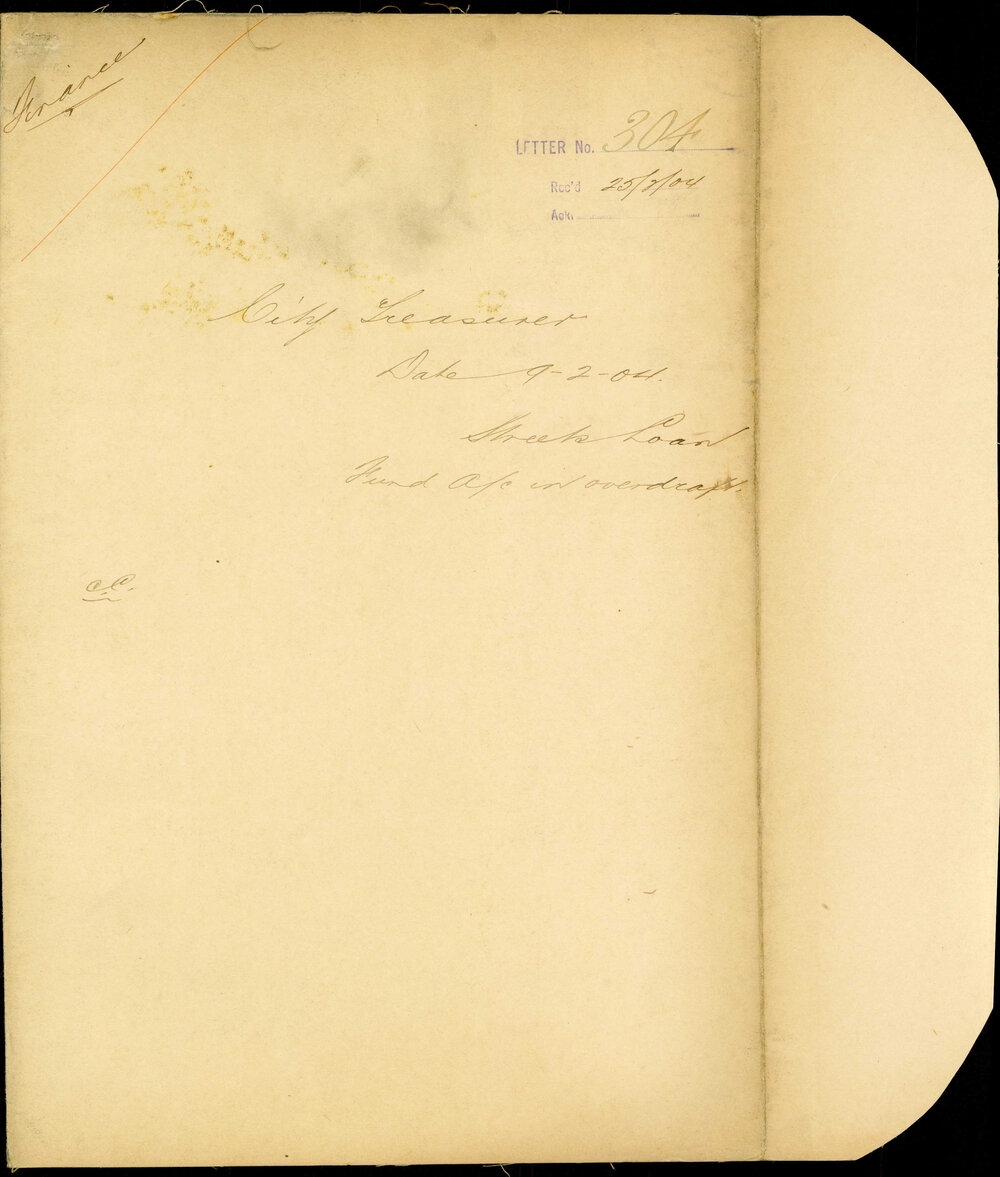 Finance
LETTER No. 304
Rec'd 25/2/04
Ack.
City Treasurer
Date 9-2-04.
Streets Loan
Fund A/c in overdraft.